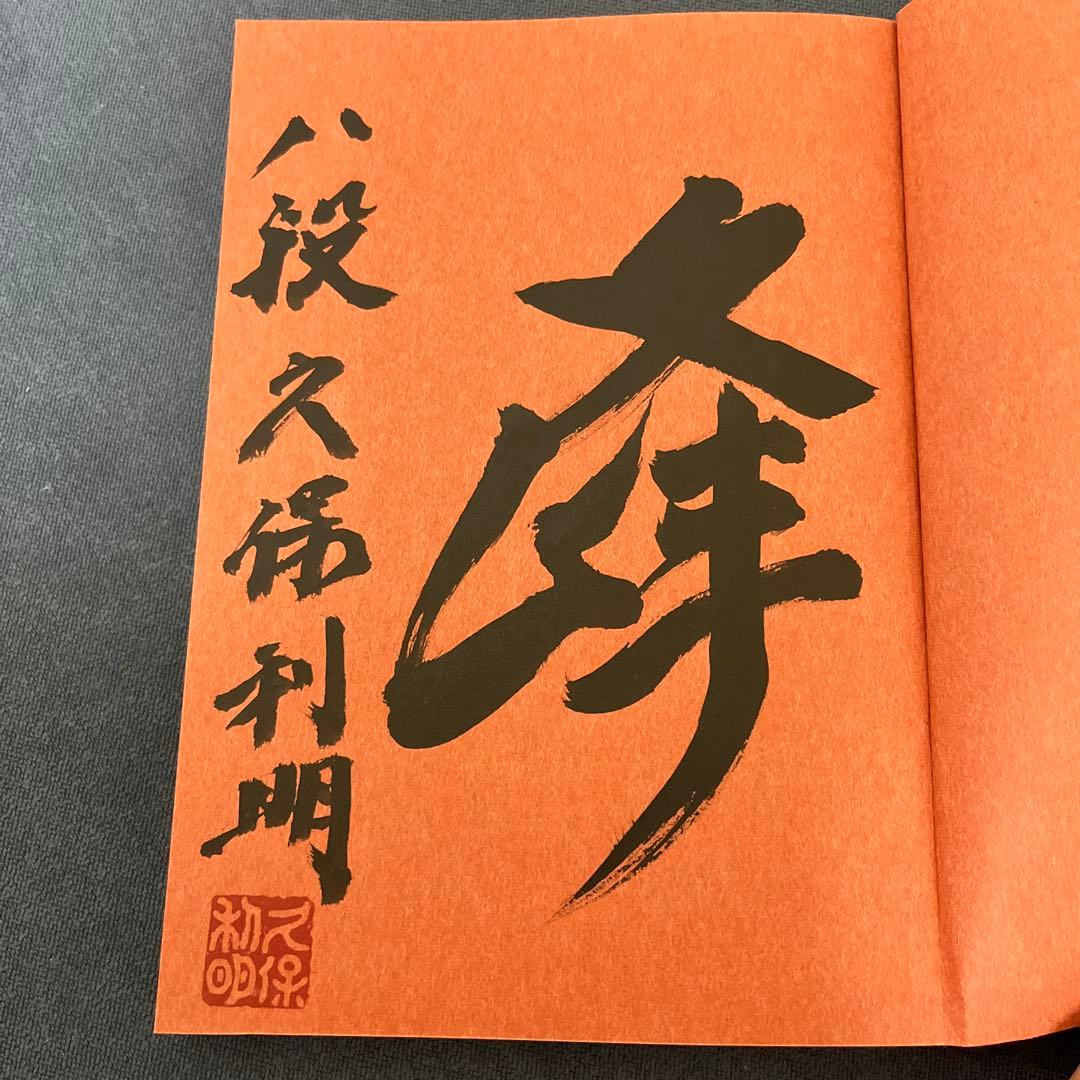 峰
八段 久保利明
久保
利明